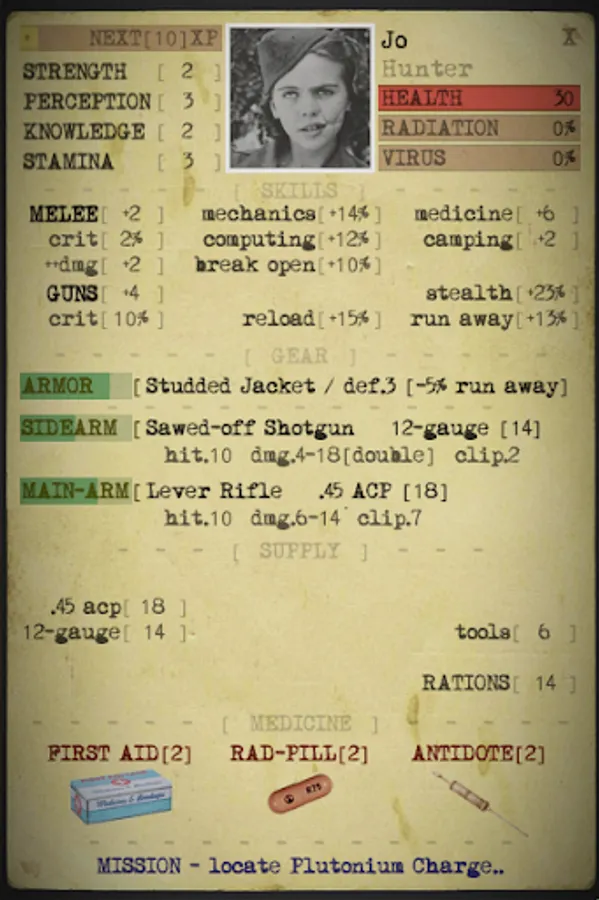 NEXT[10]XP
Jo
X
STRENGTH [ 2 ]
Hunter
PERCEPTION[ 3 ]
HEALTH 30
KNOWLEDGE [ 2 ]
RADIATION 0%
STAMINA [ 3 ]
VIRUS 0%
- - - - - [ SKILLS ] - - - - -
MELEE[ +2 ] mechanics[+14%] medicine[ +6 ]
crit[ 2% ] computing[+12%] camping[ +2 ]
++dmg[ +2 ] break open[+10%]
GUNS[ +4 ] stealth[+23%]
crit[ 10% ] reload[+15%] run away[+13%]
- - - - - [ GEAR ] - - - - -
ARMOR [Studded Jacket / def.3 [-5% run away]
SIDEARM [Sawed-off Shotgun 12-gauge [14]
hit.10 dmg.4-18[double] clip.2
MAIN-ARM[Lever Rifle .45 ACP [18]
hit.10 dmg.6-14 clip.7
- - - [ SUPPLY ] - - -
.45 acp[ 18 ]
12-gauge[ 14 ] tools[ 6 ]
RATIONS[ 14 ]
- - - - [ MEDICINE ] - - - -
FIRST AID[2] RAD-PILL[2] ANTIDOTE[2]
MISSION - locate Plutonium Charge..